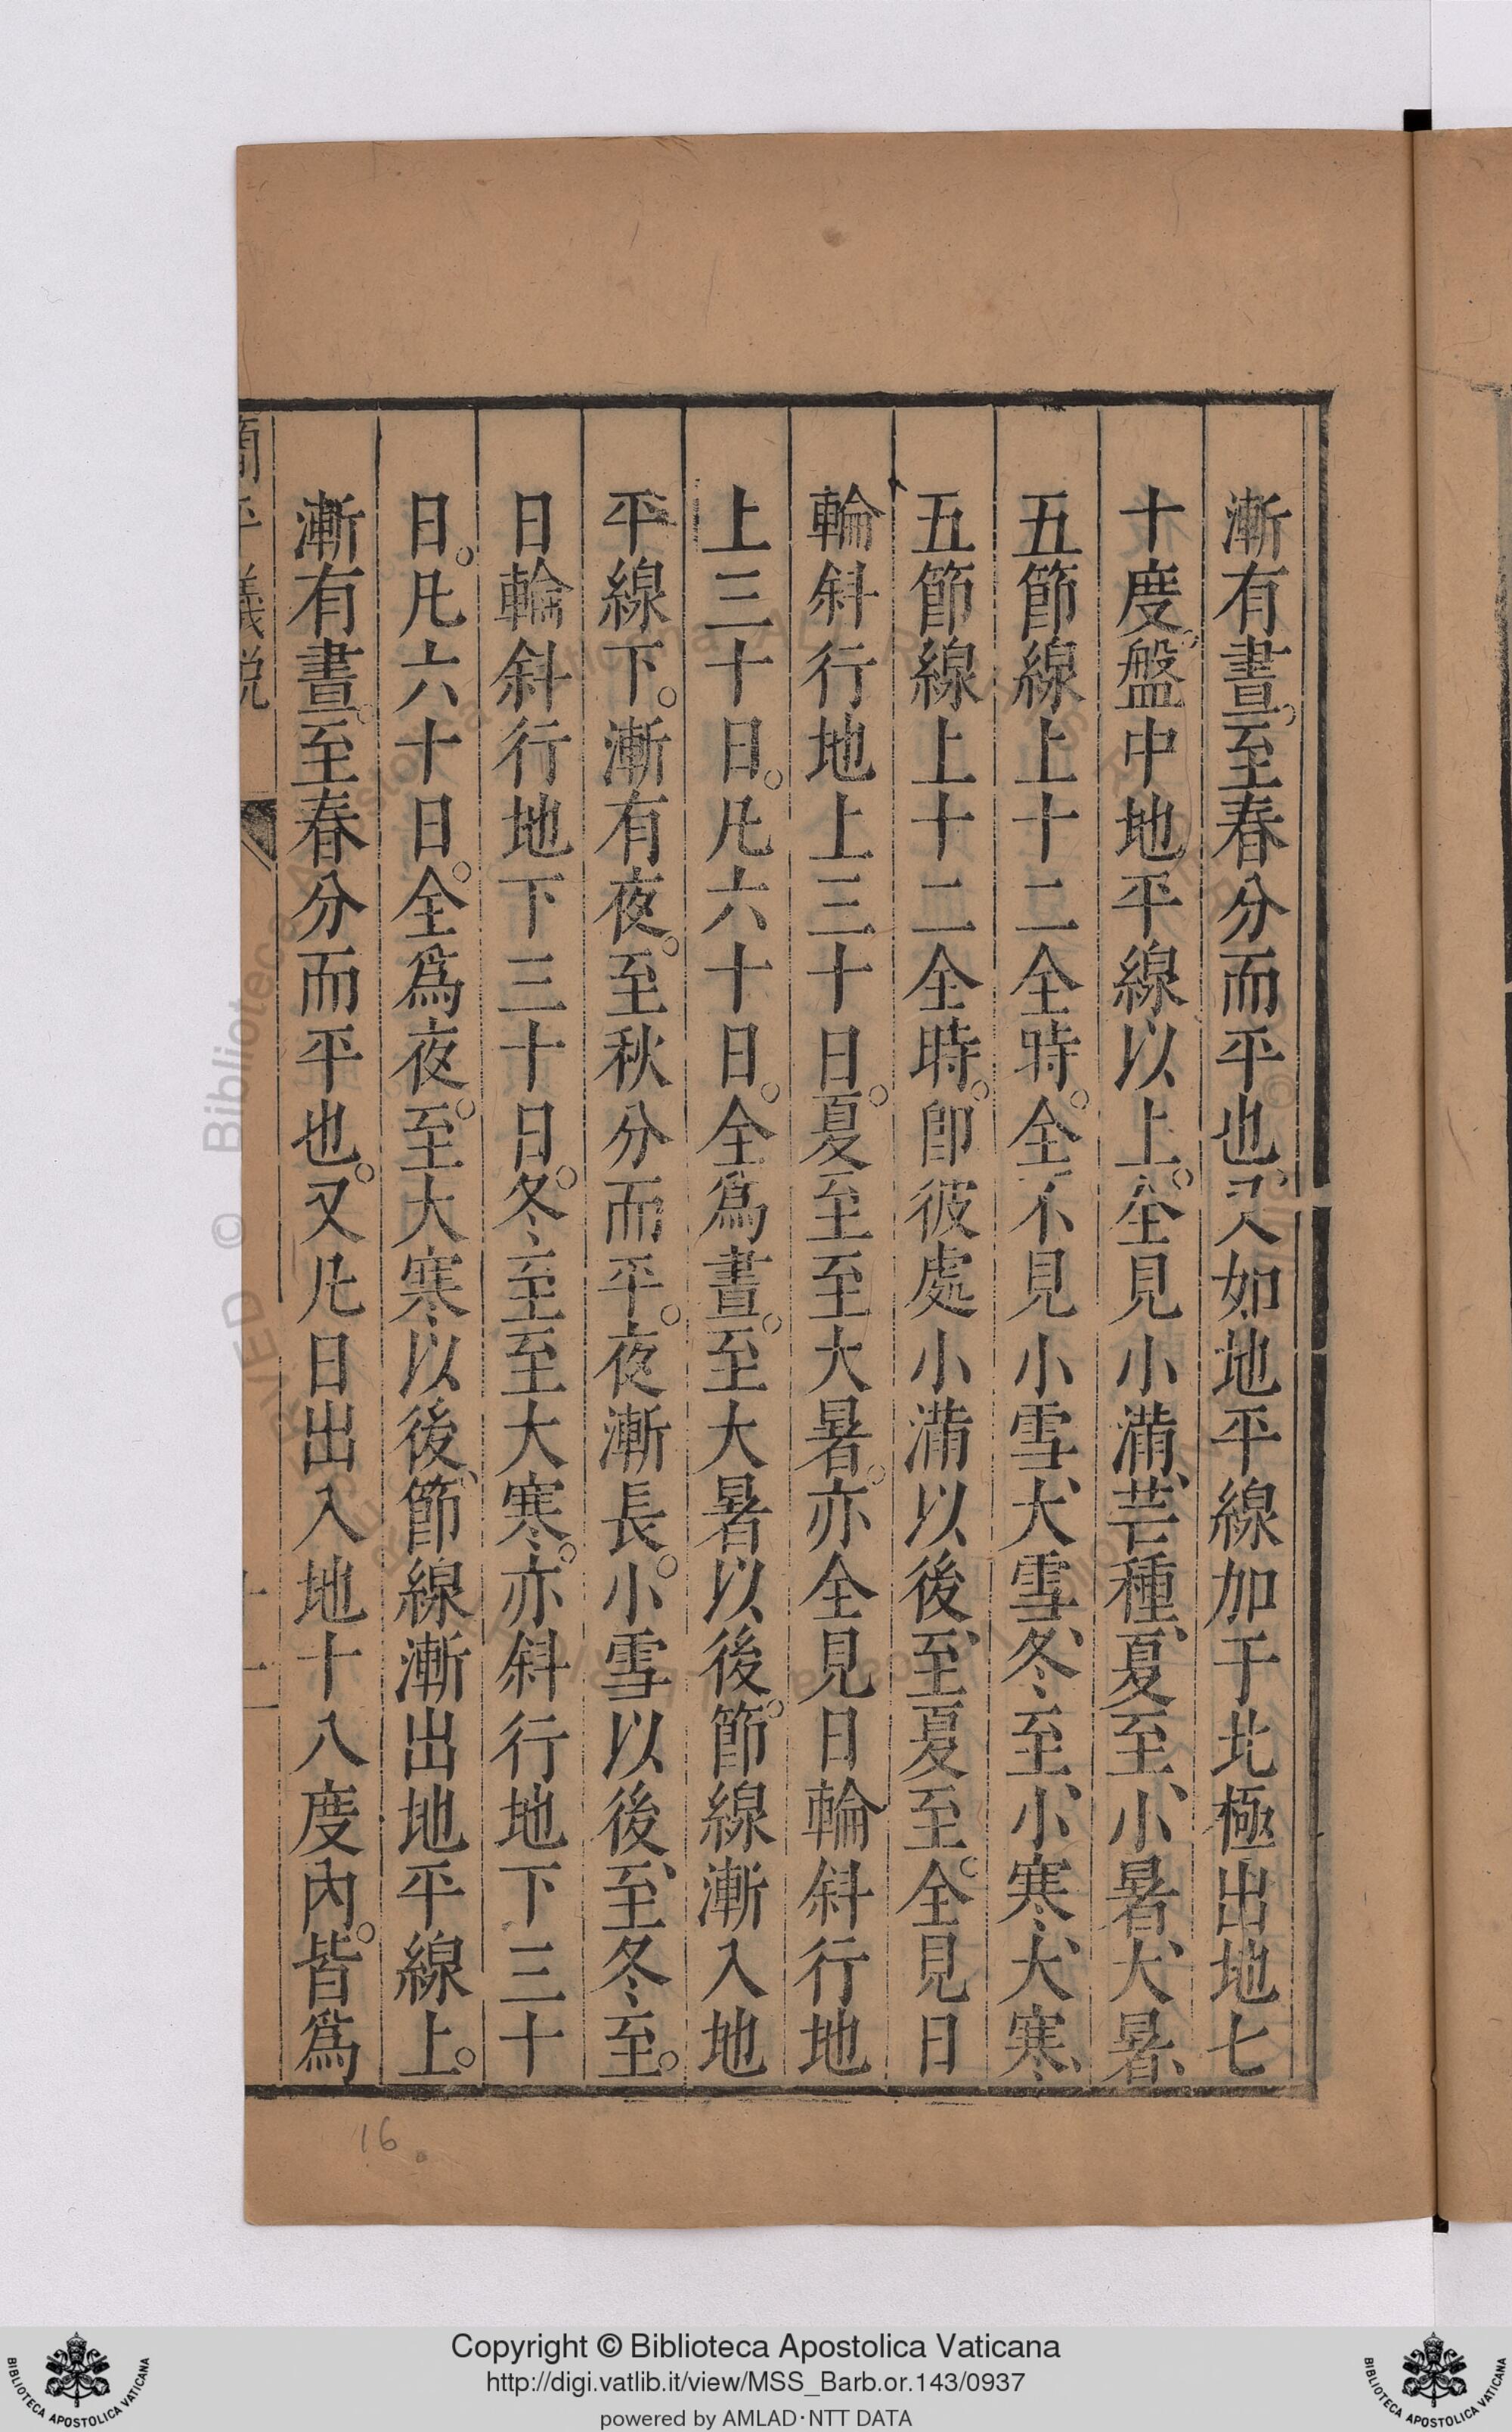 漸有晝。至春分而平也。又如地平線加于北極出地七
十度。盤中地平線以上。全見小滿、芒種、夏至、小暑、大暑、
五節線上十二全時。全不見小雪、大雪、冬至、小寒、大寒、
五節線上十二全時。卽彼處小滿以後、至夏至。全見日
輪斜行地上三十日。夏至至大暑。亦全見日輪斜行地
上三十日。凡六十日。全爲晝。至大暑以後。節線漸入地
平線下。漸有夜。至秋分而平。夜漸長。小雪以後、至冬至。
日輪斜行地下三十日。冬至至大寒。亦斜行地下三十
日。凡六十日。全爲夜。至大寒以後、節線漸出地平線上。
漸有晝。至春分而平也。又凡日出入地十八度內。皆爲
簡平儀說
十二
16
Copyright © Biblioteca Apostolica Vaticana
http://digi.vatlib.it/view/MSS_Barb.or.143/0937
powered by AMLAD·NTT DATA
BIBLIOTECA APOSTOLICA VATICANA
BIBLIOTECA APOSTOLICA VATICANA